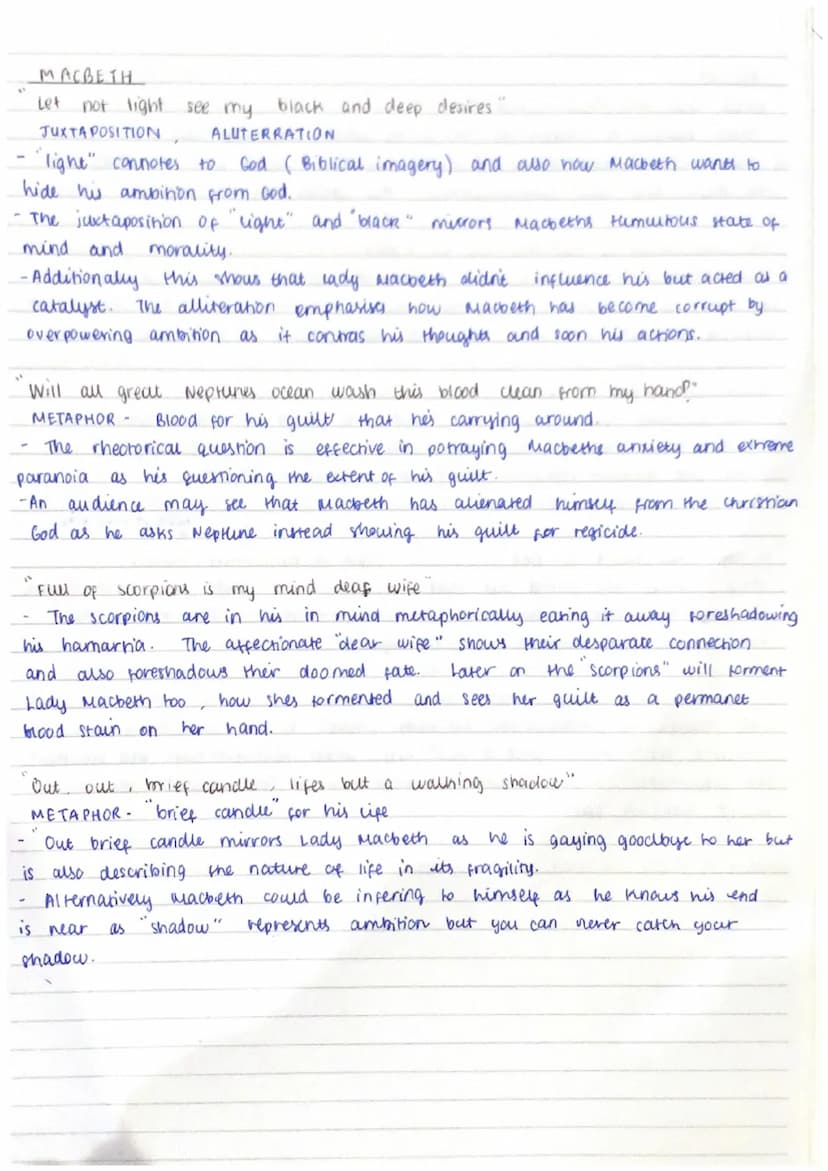 MACBETH
"Let not light see my black and deep desires"
JUXTAPOSITION, ALLITERRATION
- "light" connotes to God (Biblical imagery) and also how Macbeth wants to
hide his ambition from God.
- The juxtaposition of "light" and "black" mirrors Macbeths tumultous state of
mind and morality.
- Additionally this shows that lady Macbeth didn't influence his but acted as a
catalyst. The alliteration emphasises how Macbeth has become corrupt by
overpowering ambition as it contras his thoughts and soon his actions.
"Will all great Neptunes ocean wash this blood clean from my hand?"
METAPHOR - Blood for his guilt that hes carrying around.
- The rheotorical question is effective in potraying Macbeths anxiety and extreme
paranoia as his questioning the extent of his guilt.
- An audience may see that Macbeth has alienated himself from the Christian
God as he asks Neptune instead showing his guilt for regicide.
"Full of scorpions is my mind dear wife"
- The scorpions are in his in mind metaphorically eating it away foreshadowing
his hamartia. The affectionate "dear wife" shows their desparate connection
and also foreshadows their doomed fate. Later on the "scorpions" will torment
Lady Macbeth too, how shes tormented and sees her guilt as a permanet
blood stain on her hand.
"Out, out, brief candle, lifes but a walking shadow"
METAPHOR - "brief candle" for his life
- "Out brief candle mirrors Lady Macbeth as he is saying goodbye to her but
is also describing the nature of life in its fragility.
- Alternatively Macbeth could be infering to himself as he knows his end
is near as "shadow" represents ambition but you can never catch your
shadow.